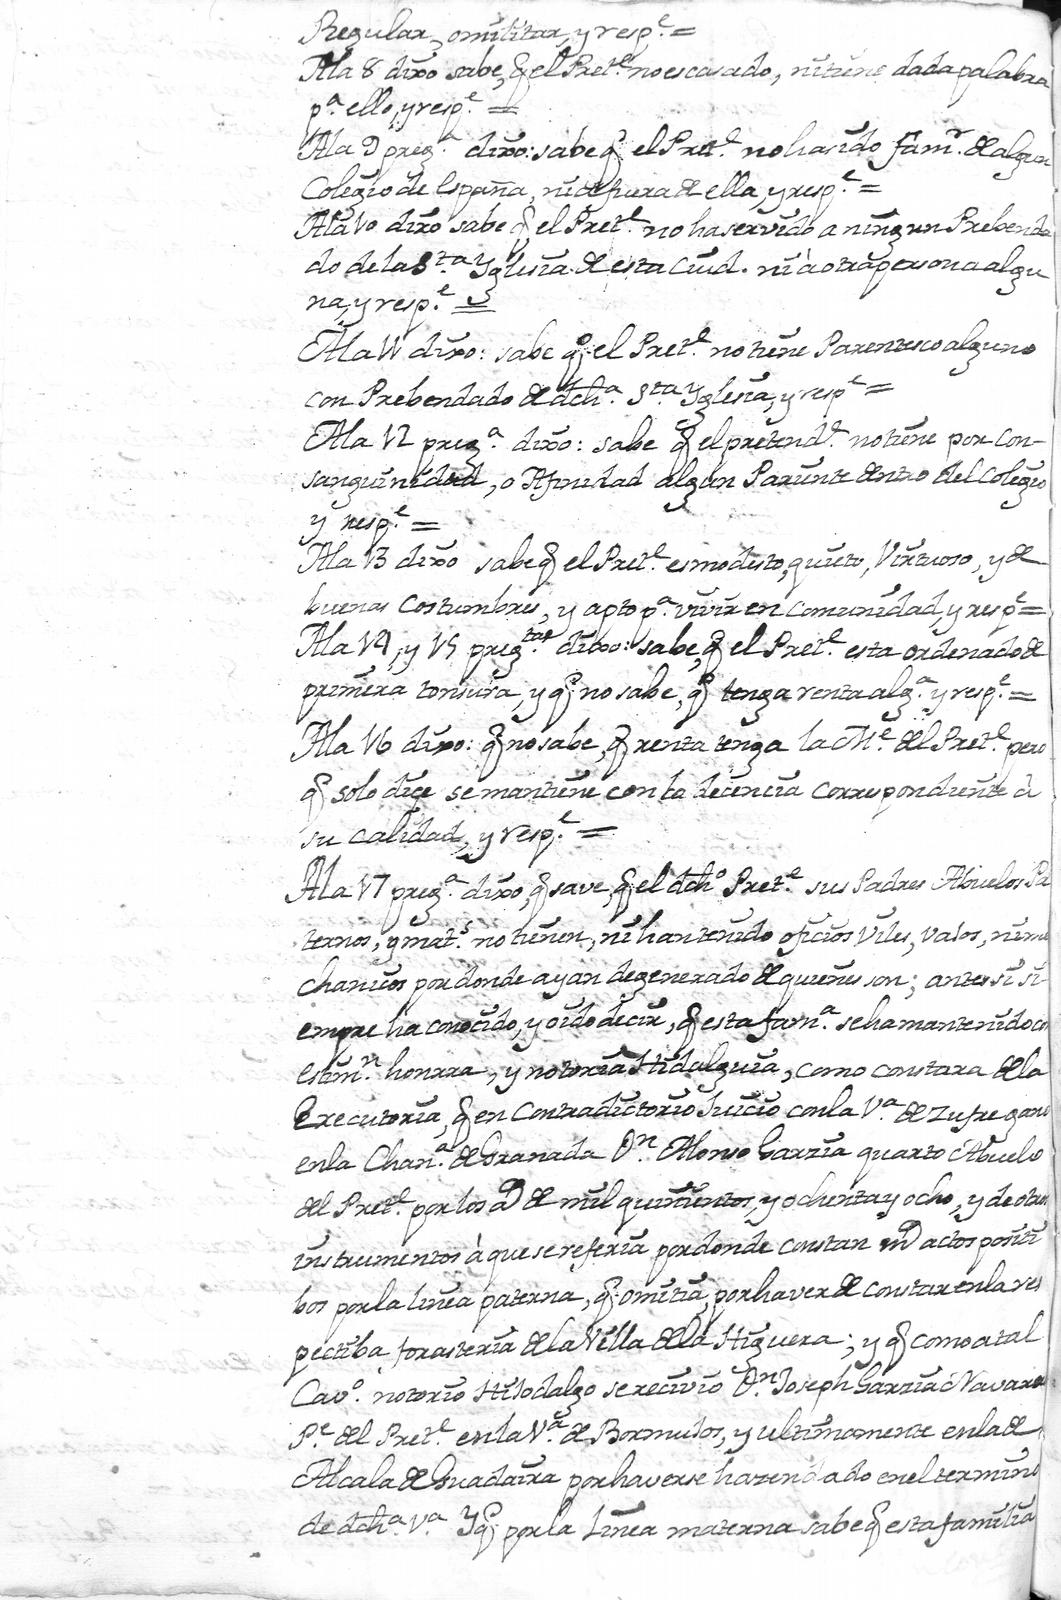 Regular, omilitar, y resp.e =
Ala 8 dixo sabe, q el Pret.e no es casado, ni tiene dada palabra
p.a ello, y resp.e =
Ala 9 preg.a dixo: sabe q el Pret.e no ha sido fam.r de algun
Colegio de España, ni de fuera de ella, y resp.e =
Ala 10 dixo sabe q el Pret.e no ha servido a ningun Prebenda
do de la S.ta Yglesia de esta Ciud. ni à otra persona algu
na, y resp.e =
Ala 11 dixo: sabe q el Pret.e no tiene Parentesco alguno
con Prebendado de dch.a S.ta Yglesia, y resp.e =
Ala 12 preg.a dixo: sabe q el pretend.e no tiene por con-
sanguinidad, o Afinidad algun Pariente dentro del Colegio
y resp.e =
Ala 13 dixo sabe q el Pret.e es modesto, quieto, Virtuoso, y de
buenas Costumbres, y apto p.a vivir en comunidad, y resp.e =
Ala 14, y 15 preg.tas dixo: sabe, q el Pret.e esta ordenado de
primera tonsura, y q no sabe, q tenga renta alg.a y resp.e =
Ala 16 dixo: q no sabe, q renta tenga la M.e del Pret.e pero
q solo dice se mantiene con la decencia correspondiente à
su calidad, y resp.e =
Ala 17 preg.a dixo, q save, q el dch.o Pret.e sus Padres Abuelos Pa
ternos, y mat.s no tienen, ni han tenido oficios Viles, vajos, ni me
chanicos por donde ayan degenerado de quienes son; antes si si
empre ha conocido, y oido decir, q esta fam.a se ha mantenido co
estim.n honrra, y notoria Hidalguia, como constara de la
Executoria, q en Contradictorio Juicio con la V.a de Zufre gano
en la Chan.a de Granada D.n Alonso Garzia quarto Abuelo
del Pret.e por los a.s de mil quinientos, y ochenta y ocho, y de otros
instrumentos à que se referia por donde constan m.s actos positi
bos por la linea paterna, q omitia, por haver de constar en la res
pectiba forasteria de la Villa de la Higuera; y q como a tal
Cav.o notorio Hijodalgo se recivio D.n Joseph Garzia Navarro
P.e del Pret.e en la V.a de Bormujos, y ultimamente en la de
Alcala de Guadaira por haverse hazendado en el termino
de dch.a V.a Y q por la Linea materna sabe q esta familia